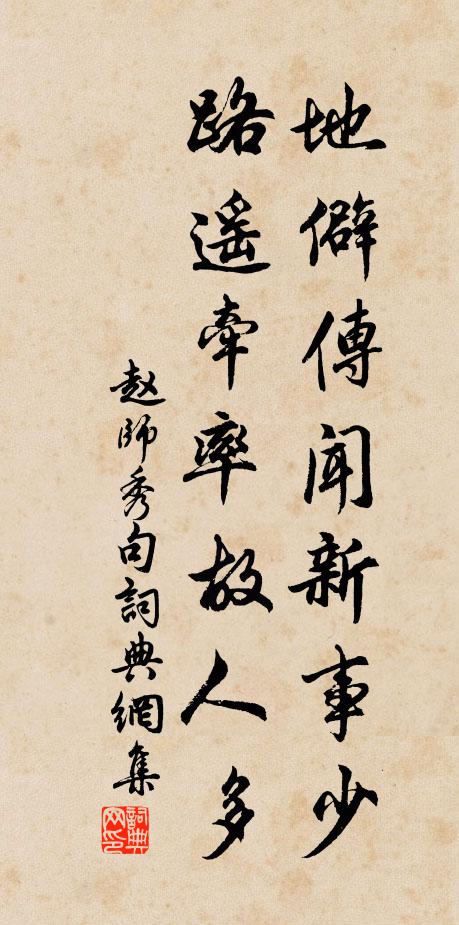 地僻傳聞新事少
路遥牵率故人多
赵師秀句詞典網集
詞典网印